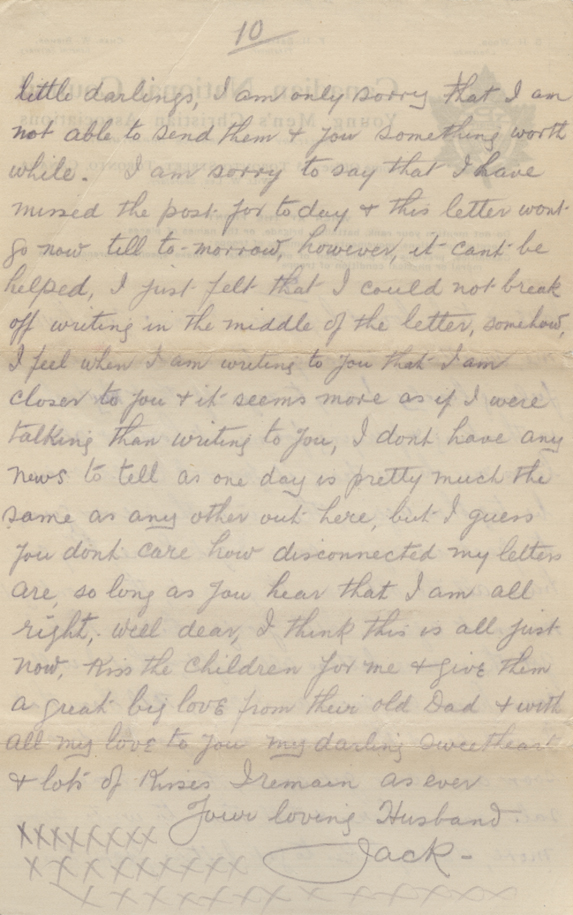 10
little darlings, I am only sorry that I am
not able to send them & you something worth
while. I am sorry to say that I have
missed the post for today & this letter wont
go now till to-morrow, however, it cant be
helped, I just felt that I could not break
off writing in the middle of the letter, somehow,
I feel when I am writing to you that I am
closer to you & it seems more as if I were
talking than writing to you, I dont have any
news to tell as one day is pretty much the
same as any other out here, but I guess
you dont care how disconnected my letters
are, so long as you hear that I am all
right, well dear, I think this is all just
now, Kiss the children for me & give them
a great big love from their old Dad & with
all my love to you my darling sweetheart
& lots of Kisses I remain as ever
Your loving Husband.
Jack -
xxxxxxxx
xxxxxxxxxxx
xxxxxxxxxxxxxx